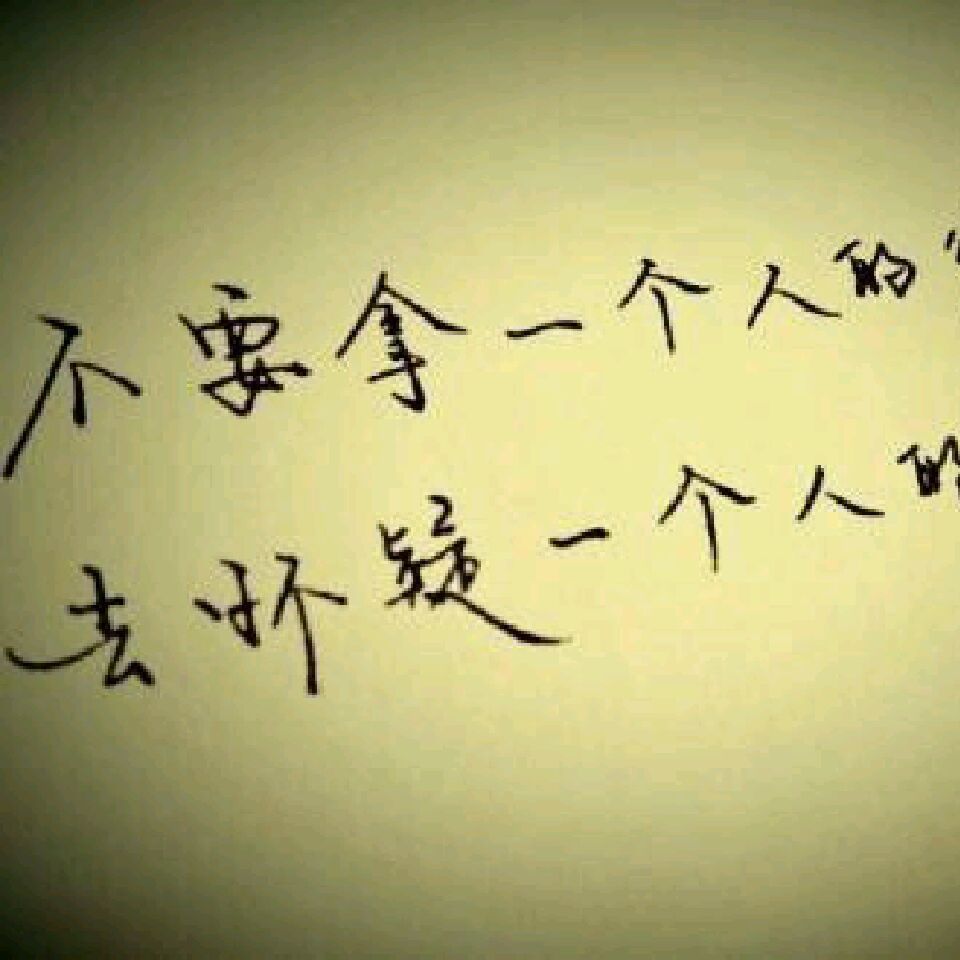 不要拿一个人的
去怀疑一个人的